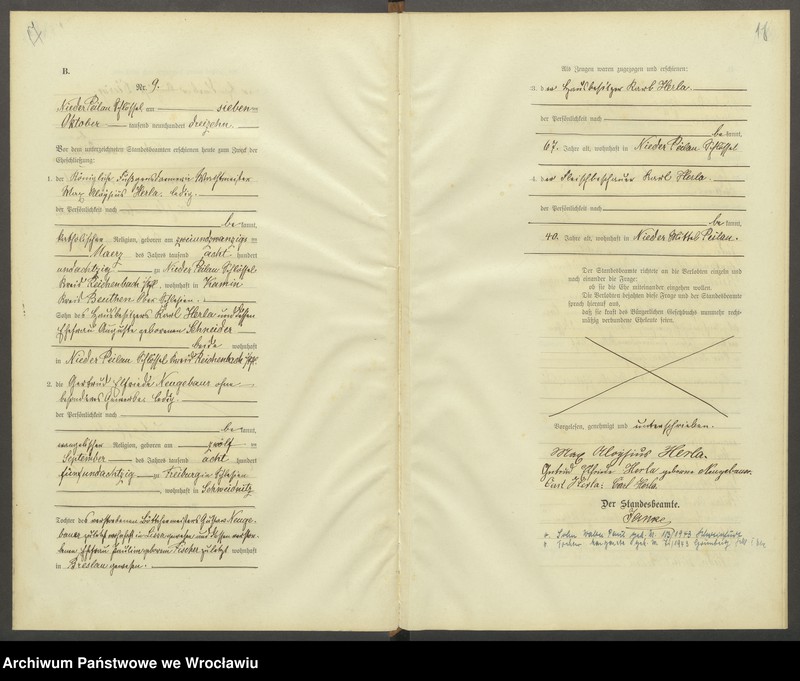 B.
Nr. 9.
Nieder Peilau Schlössel am sieben
Oktober tausend neunhundert dreizehn.
Vor dem unterzeichneten Standesbeamten erschienen heute zum Zweck der
Eheschließung:
1. der Königliche Wachtmeister
Max Aloysius Herla. ledig.
der Persönlichkeit nach
be kannt,
katholischer Religion, geboren am zweiundzwanzig
Maerz des Jahres tausend acht hundert
undachtzig zu Nieder Peilau Schlössel
Kreis Reichenbach, wohnhaft in Kamin
Kreis Beuthen Ober Schlesien.
Sohn des Hausbesitzers Karl Herla und dessen
Ehefrau Auguste geborenen Schneider
beide wohnhaft
in Nieder Peilau Schlössel Kreis Reichenbach
2. die Gertrud Elfriede Neugebaur ohne
besonderes Gewerbe ledig.
der Persönlichkeit nach
be kannt,
evangelischer Religion, geboren am zwölf
September des Jahres tausend acht hundert
fünfundachtzig zu Freiburg in Schlesien
, wohnhaft in Schweidnitz
Tochter des verstorbenen Böttchermeisters Gustav Neuge-
baur zuletzt wohnhaft in gewesen und dessen verstor-
benen Ehefrau Pauline geborenen Fischer zuletzt wohnhaft
in Breslau gewesen.
18
Als Zeugen waren zugezogen und erschienen:
3. der Hausbesitzer Karl Herla
der Persönlichkeit nach
be kannt,
67. Jahre alt, wohnhaft in Nieder Peilau Schlössel
4. der Fleischbeschauer Karl Herla.
der Persönlichkeit nach
be kannt,
40. Jahre alt, wohnhaft in Nieder Mittel Peilau.
Der Standesbeamte richtete an die Verlobten einzeln und
nach einander die Frage:
ob sie die Ehe miteinander eingehen wollen.
Die Verlobten bejahten diese Frage und der Standesbeamte
sprach hierauf aus,
daß sie kraft des Bürgerlichen Gesetzbuchs nunmehr recht-
mäßig verbundene Eheleute seien.
Vorgelesen, genehmigt und unterschrieben.
Max Aloysius Herla.
Gertrud Elfriede Herla geborene Neugebaur.
Carl Herla. Carl Herla.
Der Standesbeamte.
Archiwum Państwowe we Wrocławiu